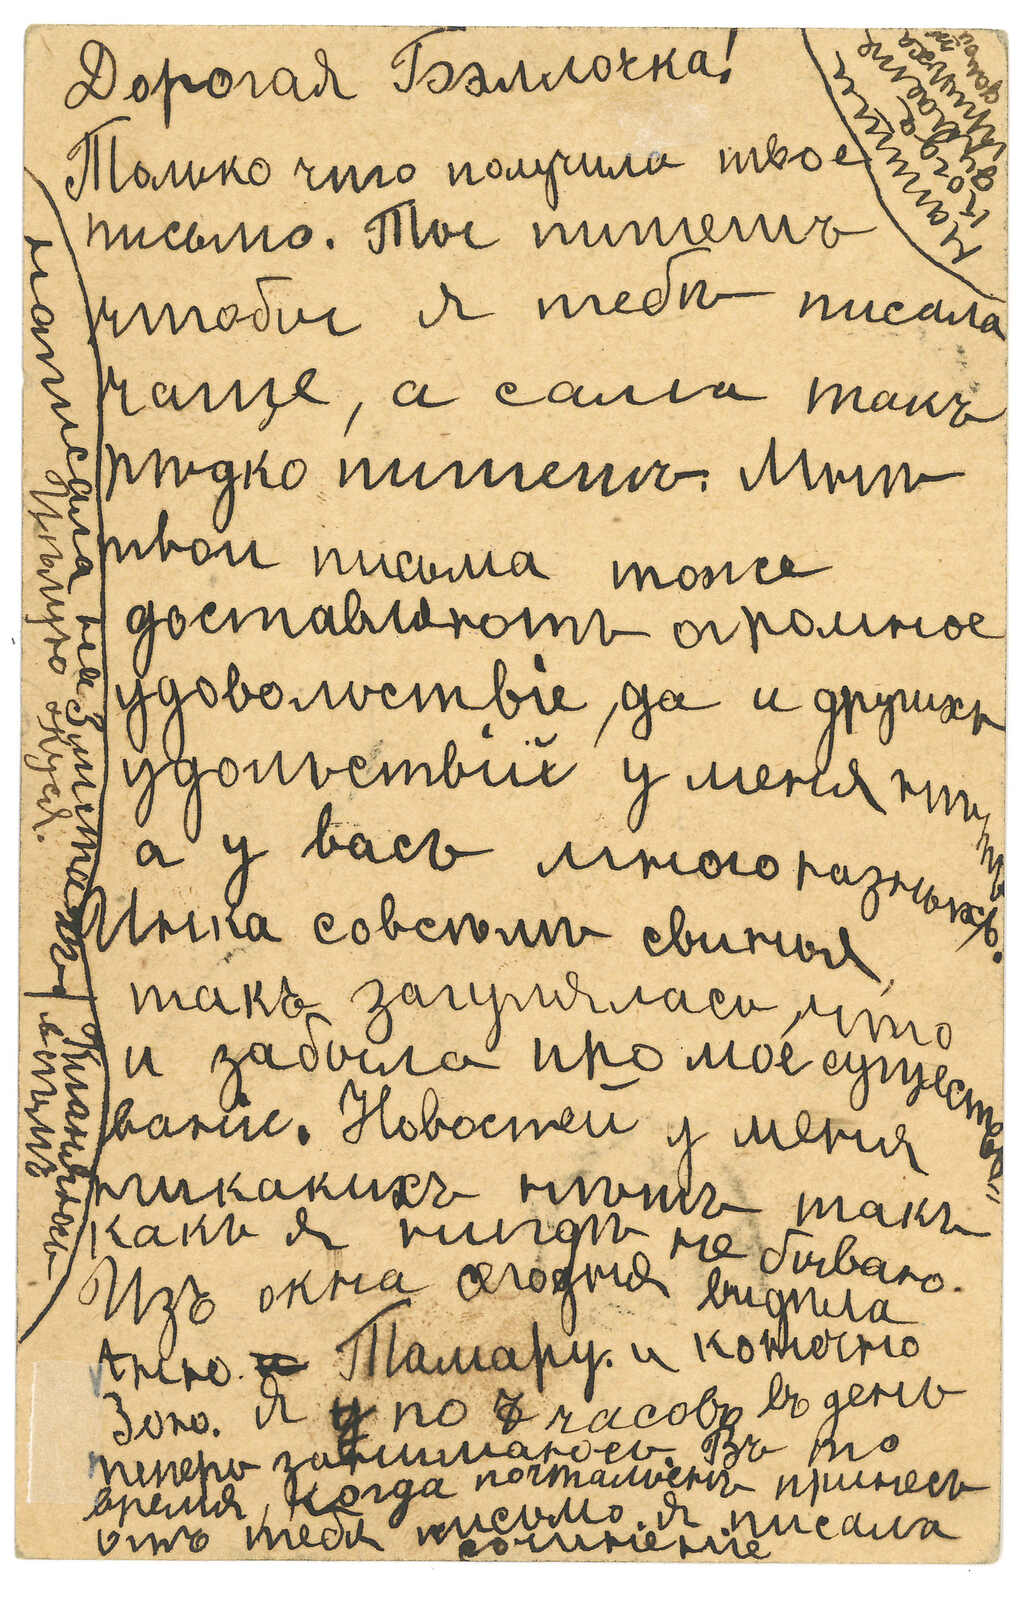 Дорогая Бэллочка!
Только что получила твое
письмо. Ты пишешь
чтобы я тебѣ писала
чаще, а сама такъ
рѣдко пишешь. Мнѣ
твои письма тоже
доставляютъ огромное
удовольствіе, да и другихъ
удольствій у меня нѣтъ,
а у васъ много разныхъ.
Инка совсѣмъ свинья,
такъ загулялась, что
и забыла про мое существо-
ваніе. Новостей у меня
никакихъ нѣтъ такъ
какъ я нигдѣ не бываю.
Изъ окна сегодня видѣла
Аню. Тамару. и конечно
Зою. Я по часовъ въ день
теперь занимаюсь. Въ то
время, когда почтальонъ принесъ
отъ тебя письмо, я писала
сочиненіе
написала на Кланяюсь
Цѣлую Дуся. всѣмъ
Напиши
когда